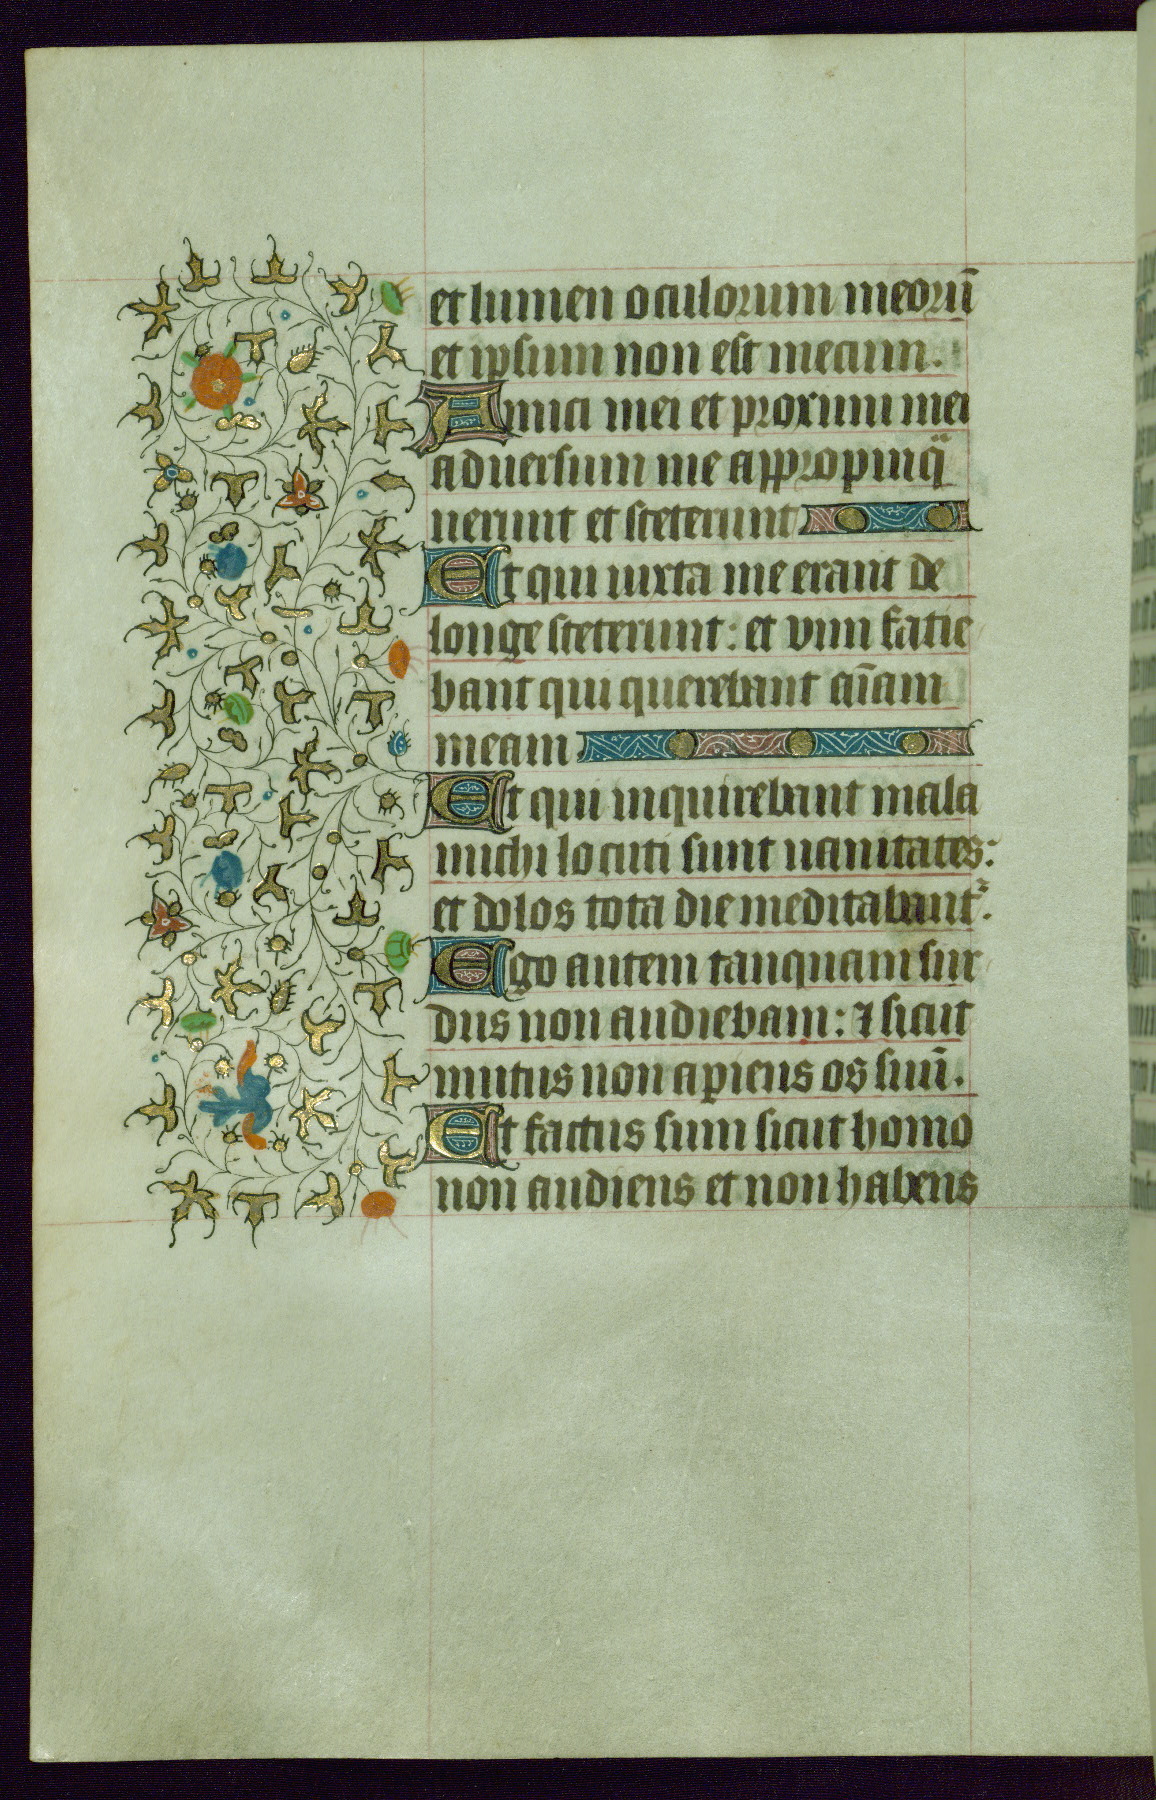 et lumen oculorum meorū
et ipsum non est mecum.
Amici mei et proximi mei
aduersum me appropinq̈
uerunt et steterunt
Et qui iuxta me erant de
longe steterunt: et vim facie
bant qui querebant aīam
meam
Et qui inquirebant mala
michi locuti sunt uanitates:
et dolos tota die meditabant᷑.
Ego autem tanquam sur
dus non audiebam: ⁊ sicut
mutus non apiens os suū.
Et factus sum sicut homo
non audiens et non habens